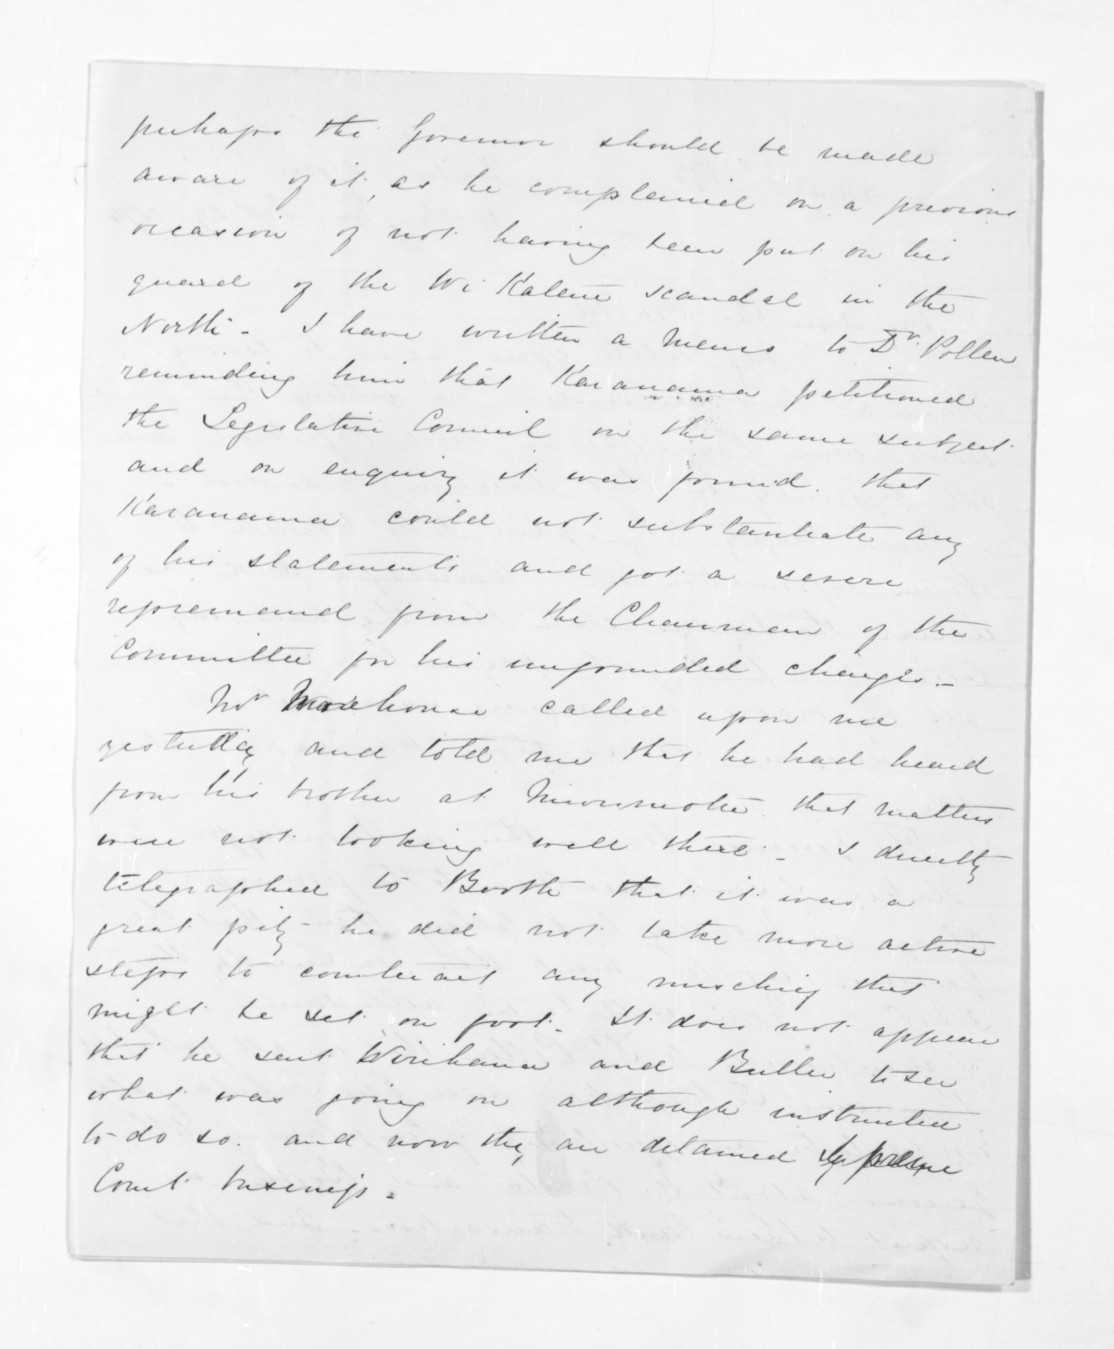 perhaps the Governor should be made
aware of it, as he complained on a previous
occasion of not having been put on his
guard of the Wi Katene scandal in the
North - I have written a Memo to Dr. Pollen
reminding him that Karanama petitioned
the Legislative Council on the same subject
and on enquiry it was found that
Karanama could not substantiate any
of his statements and got a severe
repremand from the Chairman of the
Committee for his unfounded charges -
Mr Morehouse called upon me
yesterday and told me that he had heard
from his brother at Murimotu that matters
were not looking well there - I directly
telegraphed to Booth that it was a
great pity he did not take more active
steps to counteract any mischief that
might be set on foot - It does not appear
that he sent Wirihana and Butler to see
what was going on although instructed
to do so. and now they are detained by Supreme
Court business -